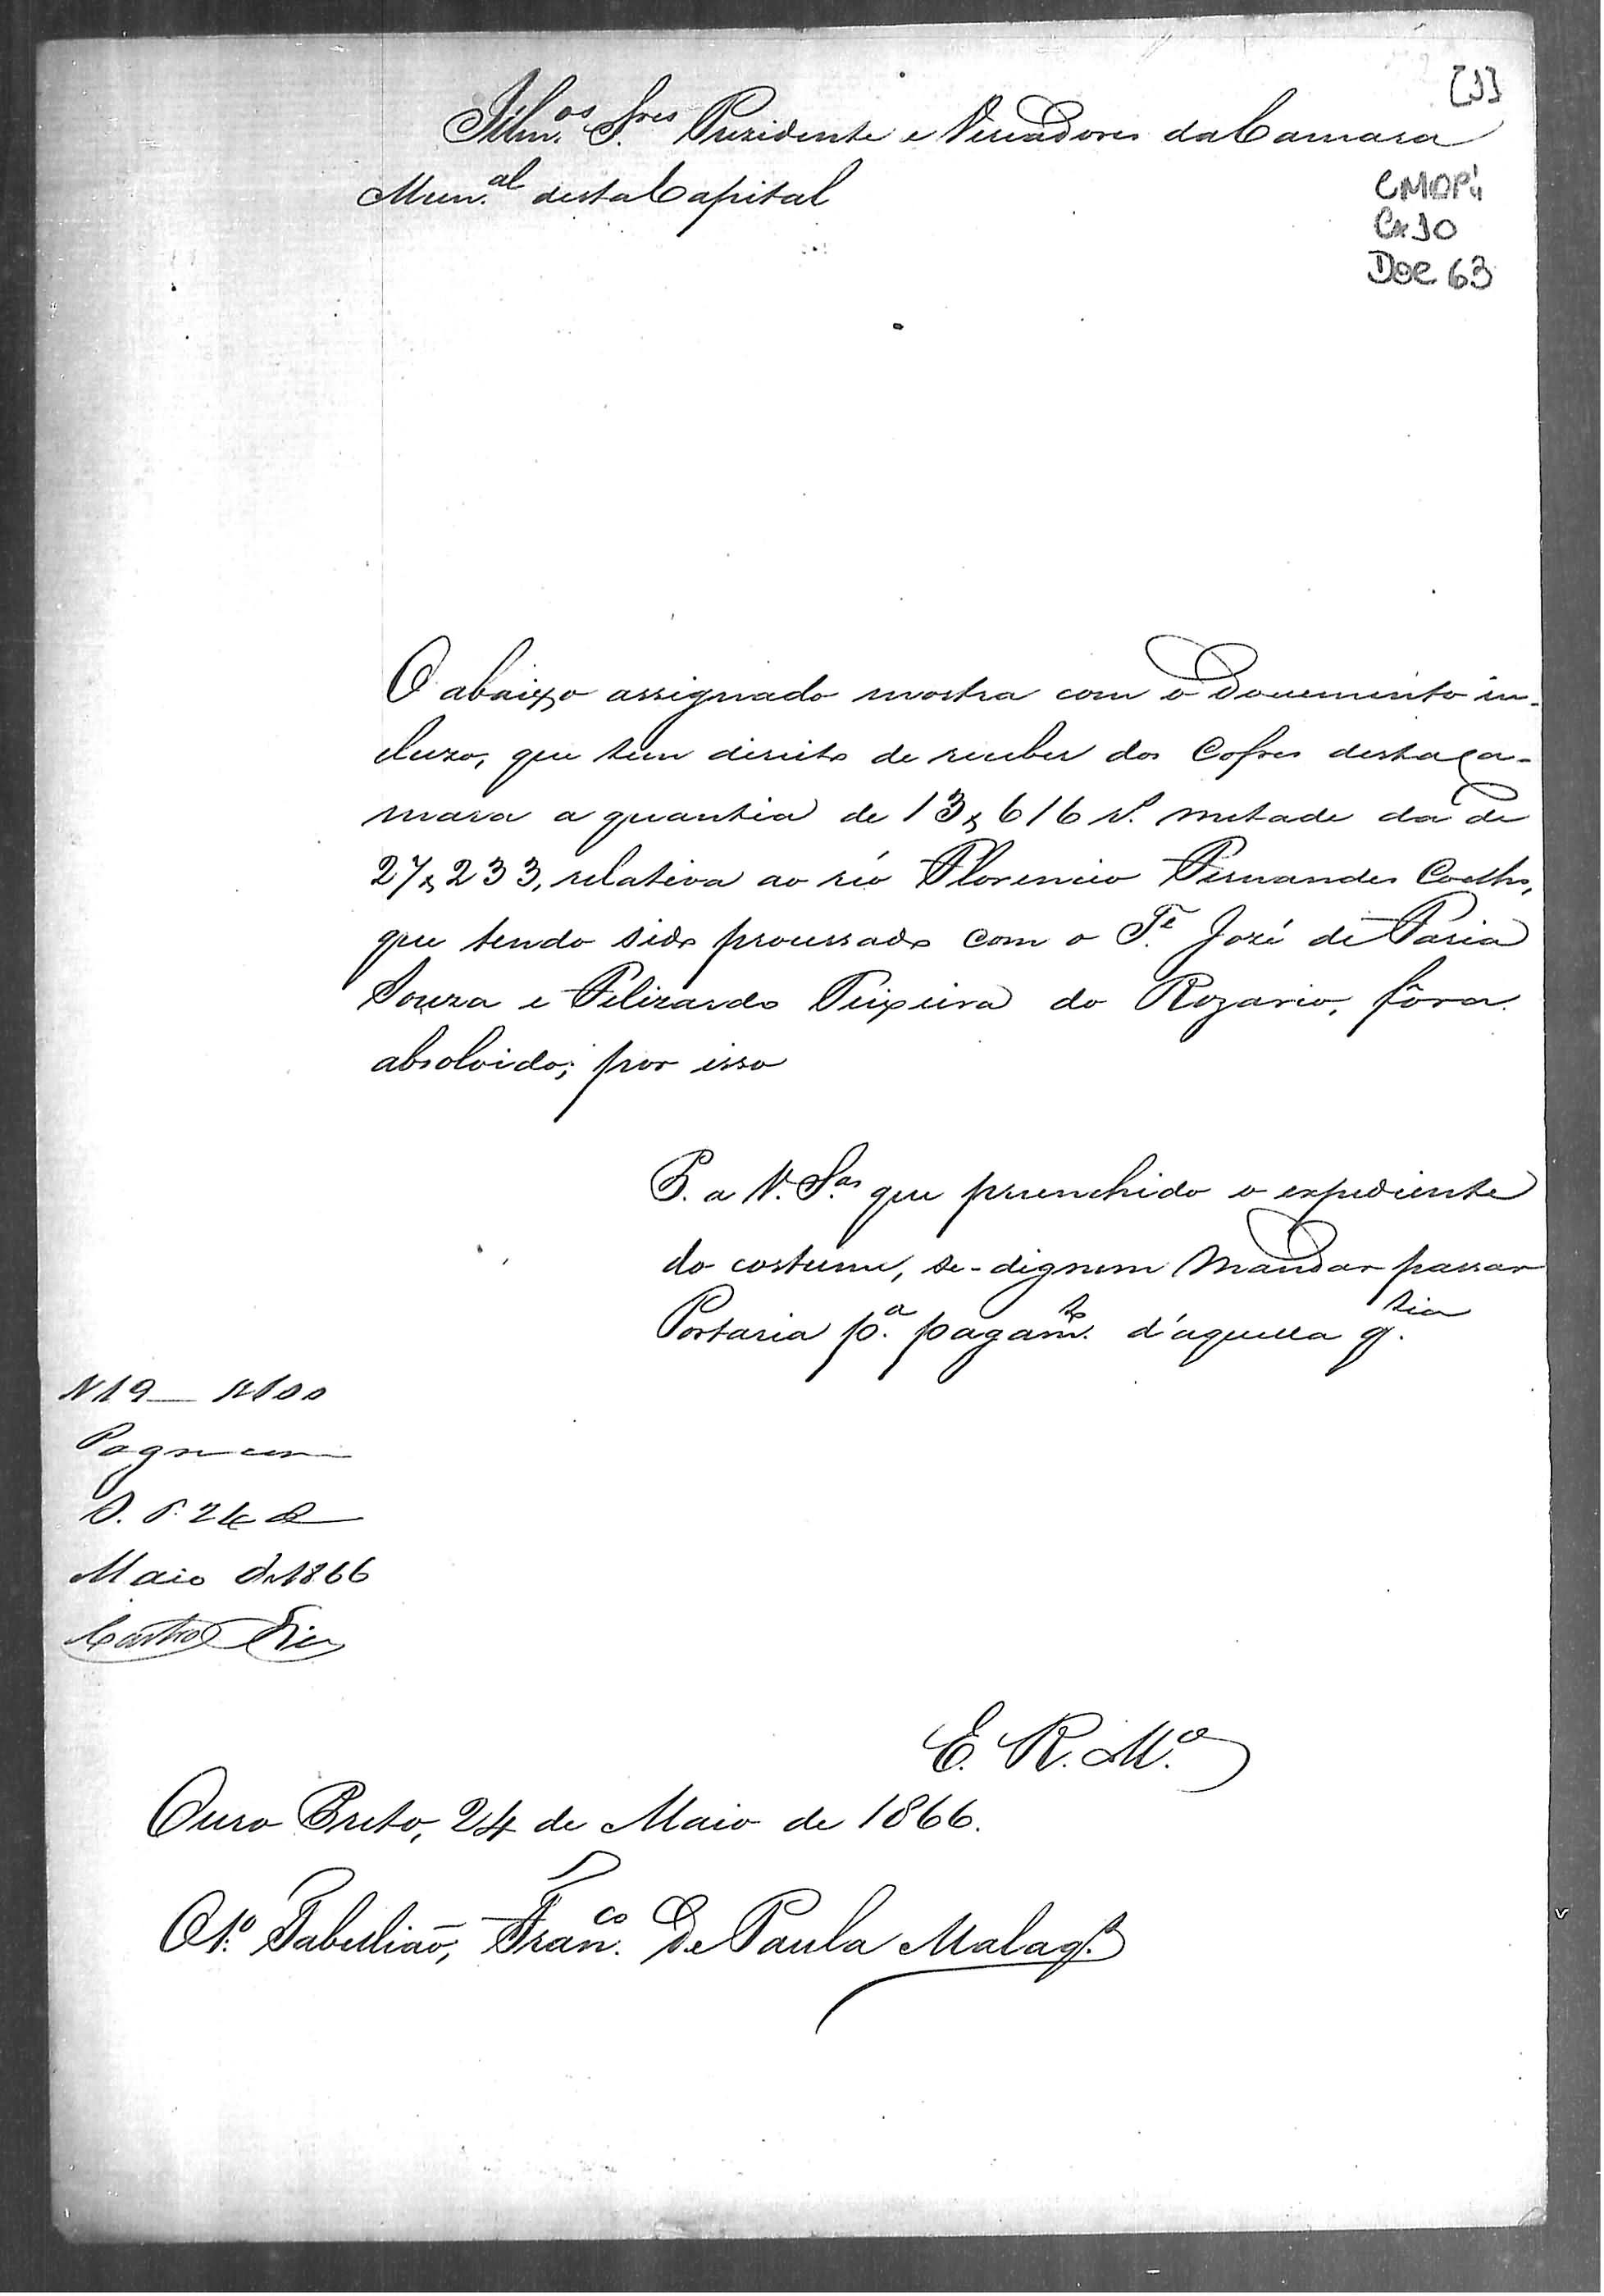 [1]
Illmos. Snres. Prezidente e Vereadores da Camara
Mun.al desta Capital
CMOP
Cx 10
Doc 63
O abaixo assignado mostra com o documento in-
cluzo, que tem direito de receber dos Cofres desta Ca-
mara a quantia de 13$616 r.s metade da de
27$233, relativa ao réo Florencio Fernandes Coelho,
que tendo sido processado com o T.e José de Faria
Souza e Felizardo Teixeira do Rozario, fôra
absolvido; por isso
P. a V. S.as que preenchido o expediente
do costume, se-dignem mandar passar
Portaria p.a pagam.to d'aquella q.tia
N 19 100
Pag
O. P. 24 de
Maio de 1866
Castro
E. R. M.ce
Ouro Preto, 24 de Maio de 1866.
O 1.º Tabellião, Fran.co de Paula Malag.s